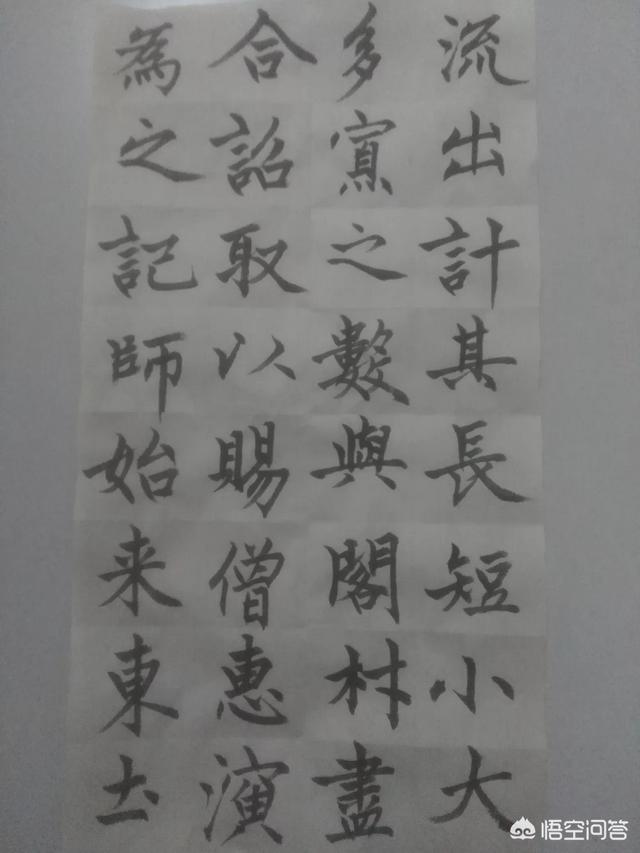 流出計其長短小大
多寡之數與閣材盡
合詔取以賜僧惠演
為之記師始来東圡
悟空问答